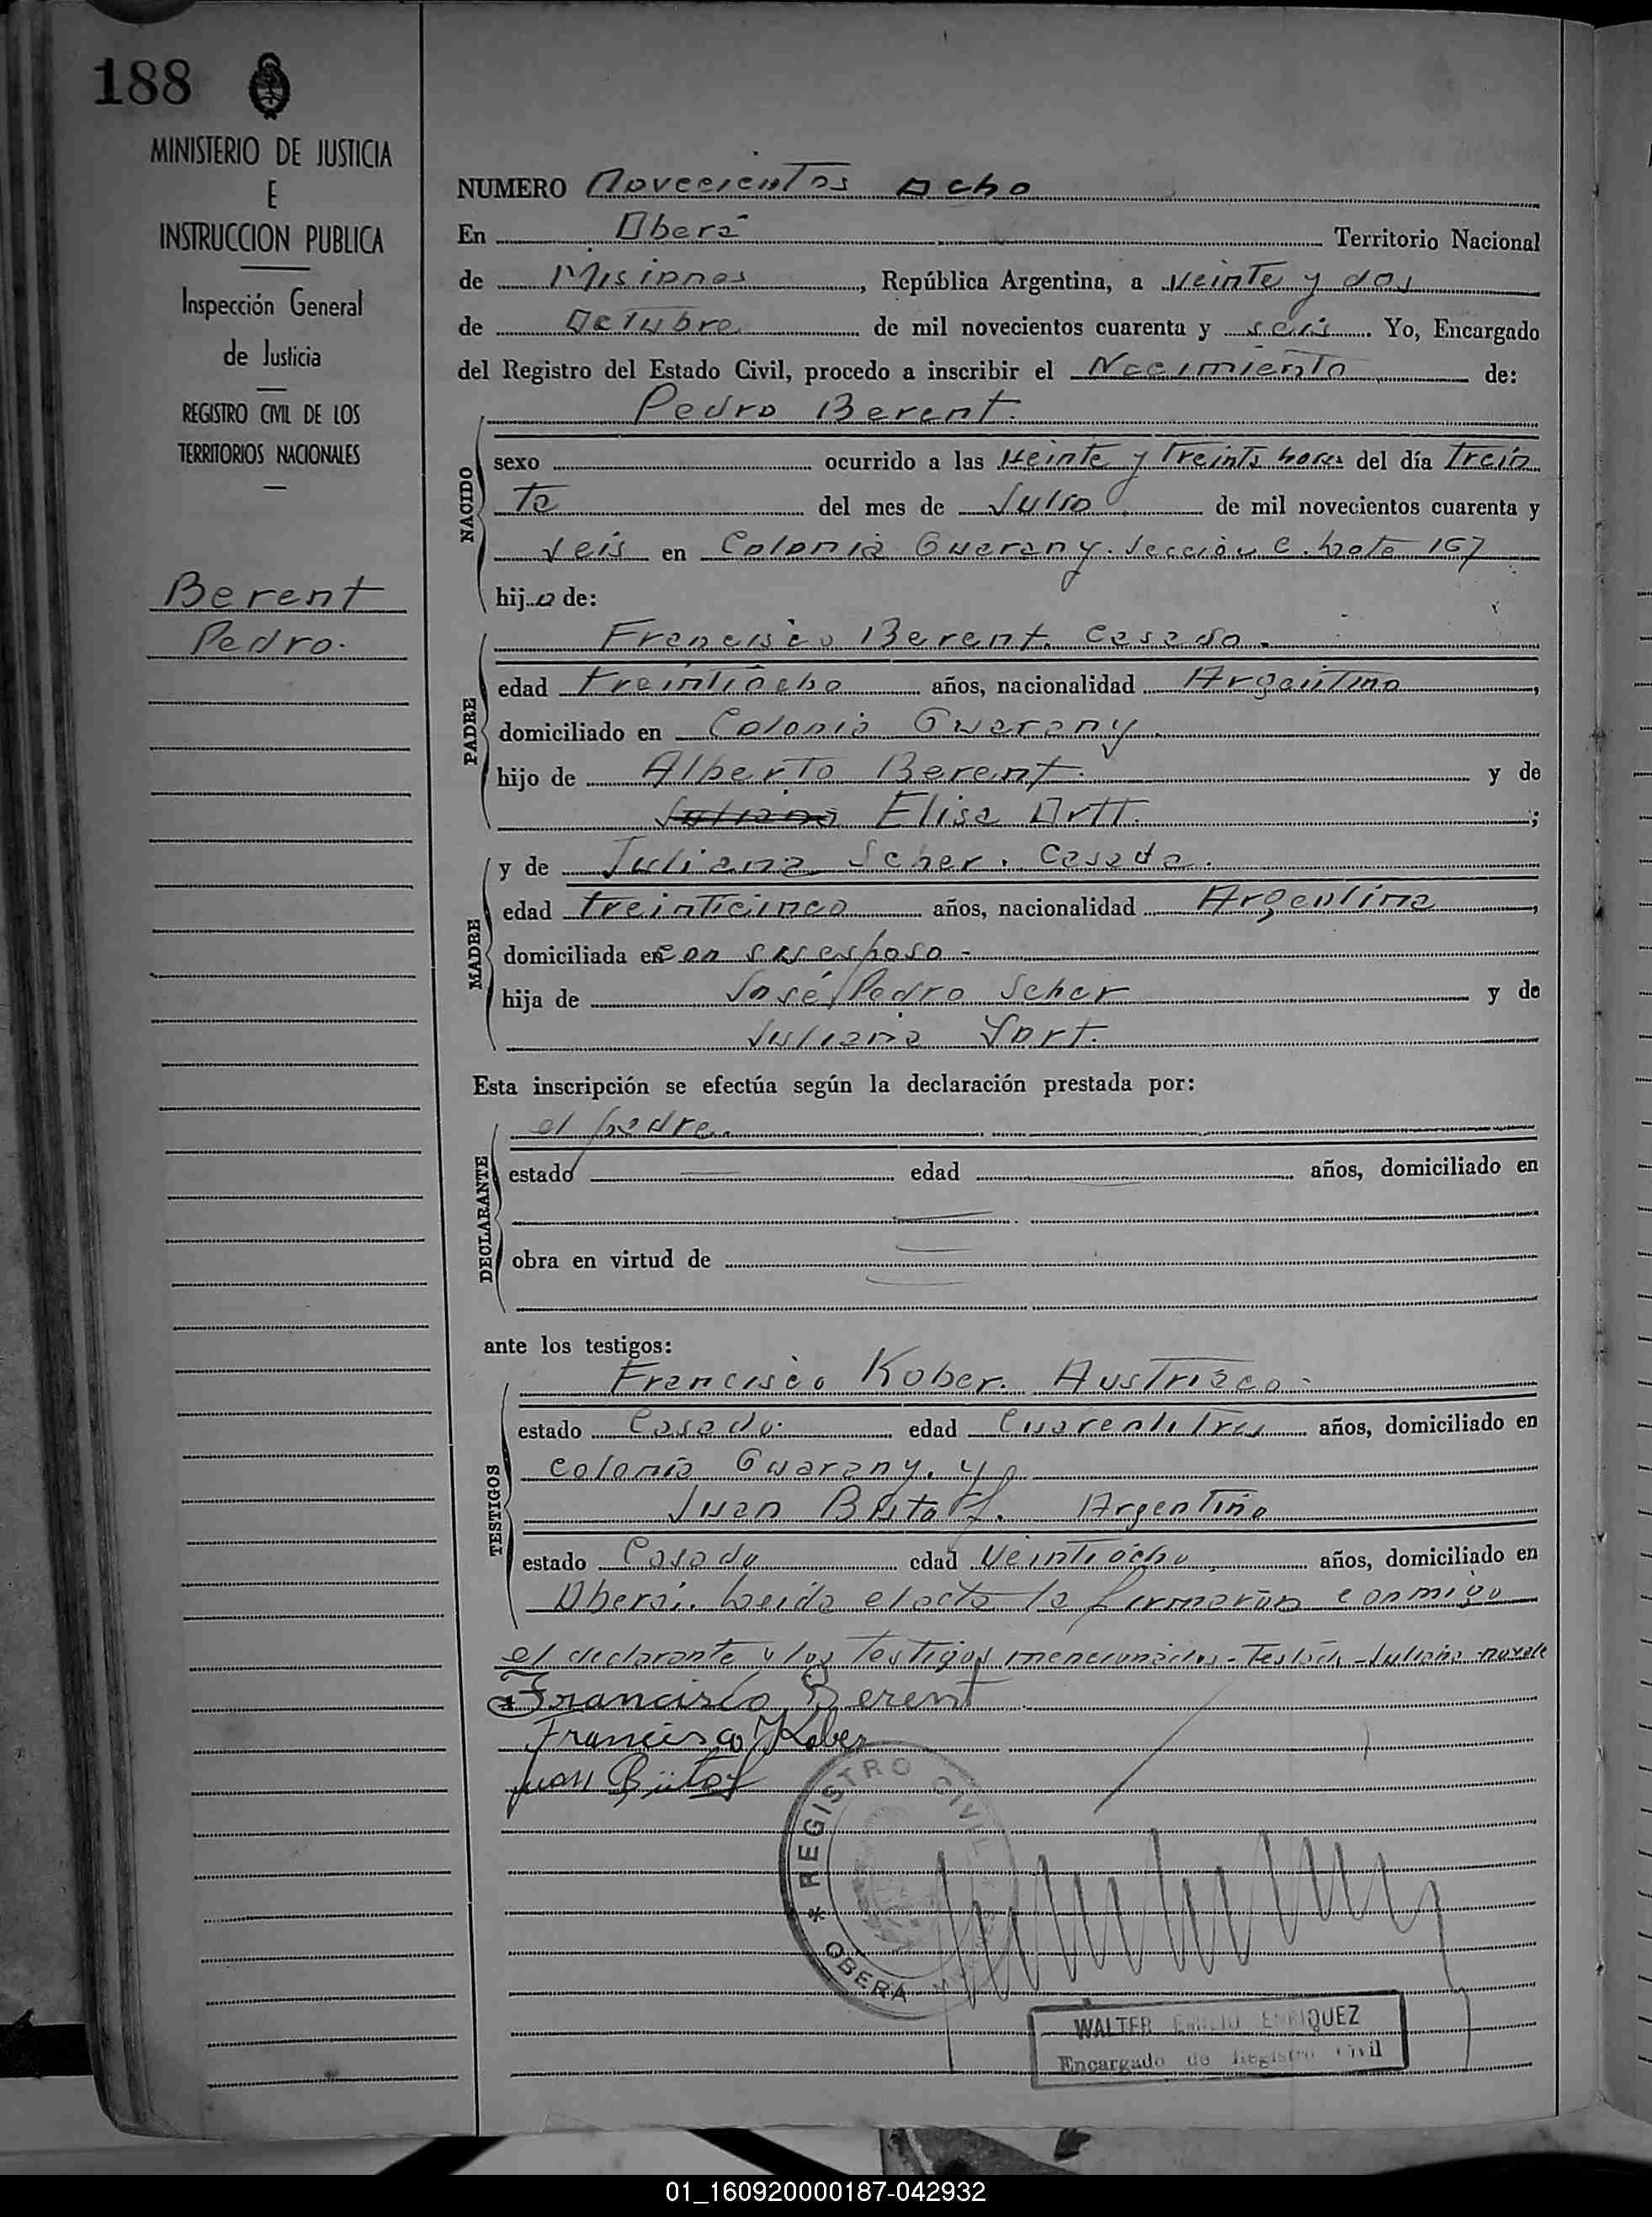 188
MINISTERIO DE JUSTICIA
E
INSTRUCCION PUBLICA
Inspección General
de Justicia
REGISTRO CIVIL DE LOS
TERRITORIOS NACIONALES
Berent
Pedro.
NUMERO Novecientos Ocho
En Oberá Territorio Nacional
de Misiones, República Argentina, a veinte y dos
de Octubre de mil novecientos cuarenta y seis. Yo, Encargado
del Registro del Estado Civil, procedo a inscribir el Nacimiento de:
Pedro Berent.
NACIDO
sexo ocurrido a las veinte y treinta horas del día trein
ta del mes de Julio de mil novecientos cuarenta y
seis en Colonia Guarany. Sección C. Lote 167
hijo de:
PADRE
Francisco Berent. Casado.
edad treintiocho años, nacionalidad Argentino,
domiciliado en Colonia Guarany.
hijo de Alberto Berent. y de
Juliana Elisa Ortt.;
MADRE
y de Juliana Scher. Casada.
edad treinticinco años, nacionalidad Argentina,
domiciliada en con su esposo -
hija de José Pedro Scher y de
Juliana Yort.
Esta inscripción se efectúa según la declaración prestada por:
DECLARANTE
el padre.
estado edad años, domiciliado en
obra en virtud de
ante los testigos:
TESTIGOS
Francisco Kober. Austriaco -
estado Casado. edad Cuarentitres años, domiciliado en
colonia Guarany. y
Juan Butoff. Argentino
estado Casado edad Veintiocho años, domiciliado en
Oberá. Leida el acta la firmarón conmigo
el declarante y los testigos mencionados - Testado - Juliana - no vale
Francisco Berent
Francisco Kober
Juan Bütof
* REGISTRO CIVIL * OBERA
WALTER EMILIO ENRIQUEZ
Encargado de Registro Civil
01_160920000187-042932